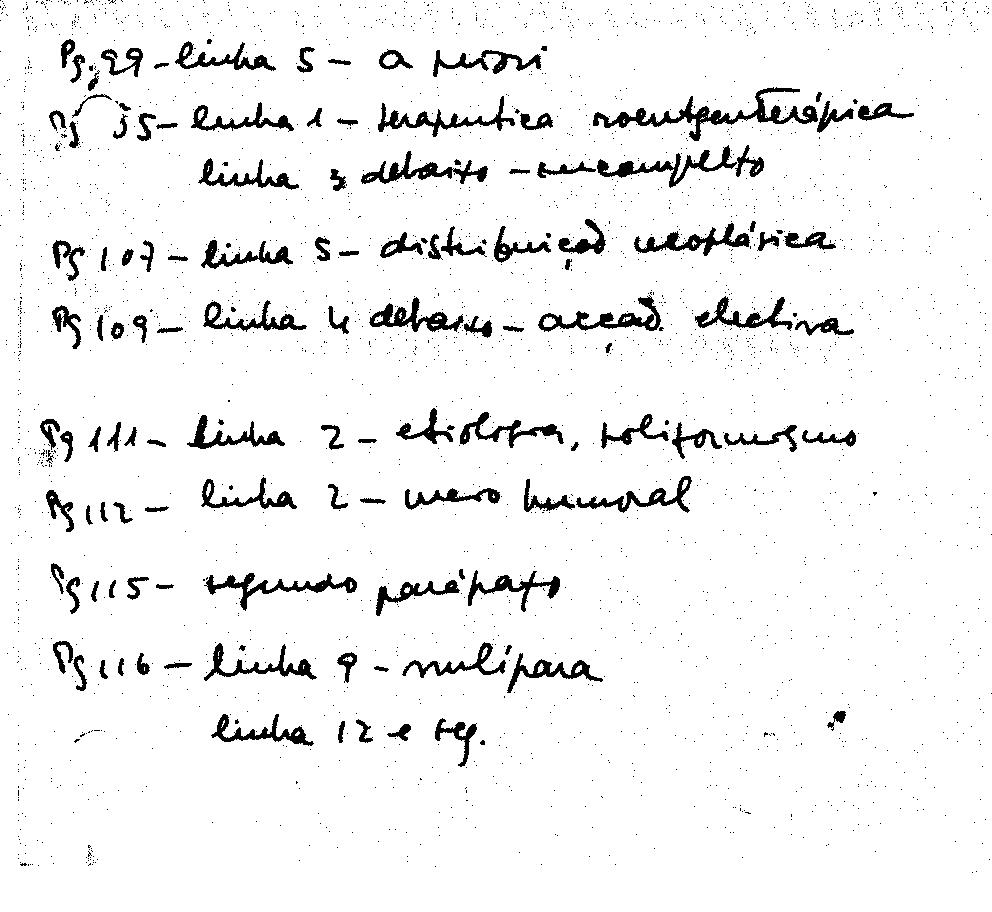 Pg. 99 - linha 5 - a priori
Pg 35 - linha 1 - terapeutica roentgenterápica
linha 3 debaixo - incompleto
Pg 107 - linha 5 - distribuição neoplásica
Pg 109 - linha 4 debaixo - acção electiva
Pg 111 - linha 2 - etiologia,
Pg 112 - linha 2 - mero humoral
Pg 115 - segundo parágrafo
Pg 116 - linha 9 - nulípara
linha 12 e seg.